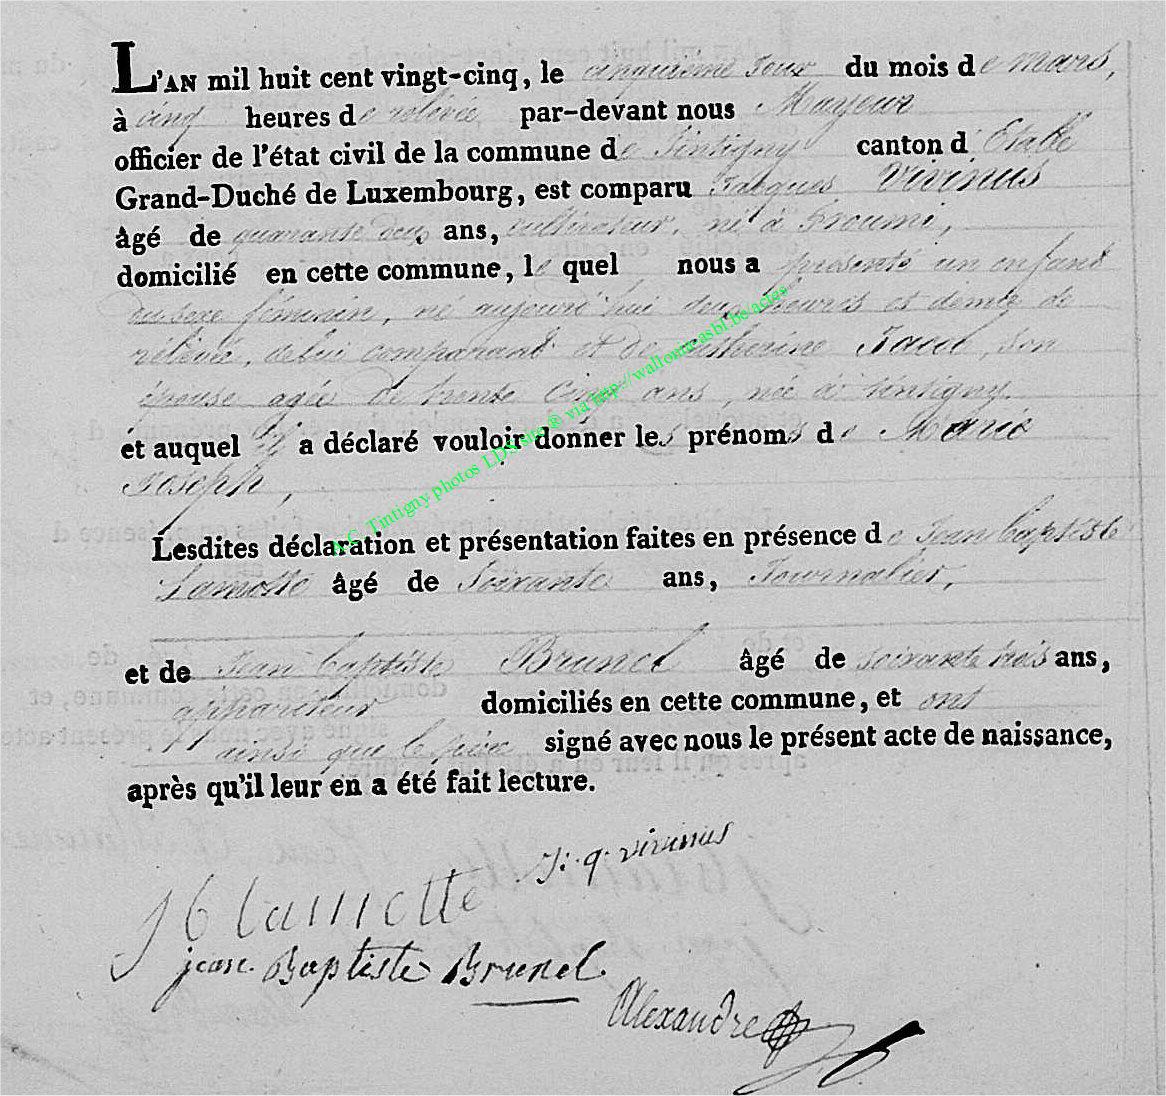 L'AN mil huit cent vingt-cinq, le cinquième jour du mois de mars,
à cinq heures de relevée par-devant nous Mayeur
officier de l'état civil de la commune de Tintigny canton d'Etalle
Grand-Duché de Luxembourg, est comparu Jacques Vivinus
âgé de quarante deux ans, cultivateur, né à
domicilié en cette commune, le quel nous a présenté un enfant
du sexe féminin, né aujourd'hui heures et demie de
relevée, de lui comparant et de Catherine son
épouse agée de trente cinq ans, née à Tintigny.
et auquel il a déclaré vouloir donner les prénoms de Marie
Joseph,
Lesdites déclaration et présentation faites en présence de Jean baptiste
Lamotte âgé de Soixante ans, Journalier,
et de Jean baptiste Brunel âgé de soixante trois ans,
appariteur domiciliés en cette commune, et ont
ainsi que le père signé avec nous le présent acte de naissance,
après qu'il leur en a été fait lecture.
J. q. vivinus
J b lamotte
jean. Baptiste Brunel
Alexandre
A.C. Tintigny photos LDS site ® via http://wallonia-asbl.be/actes